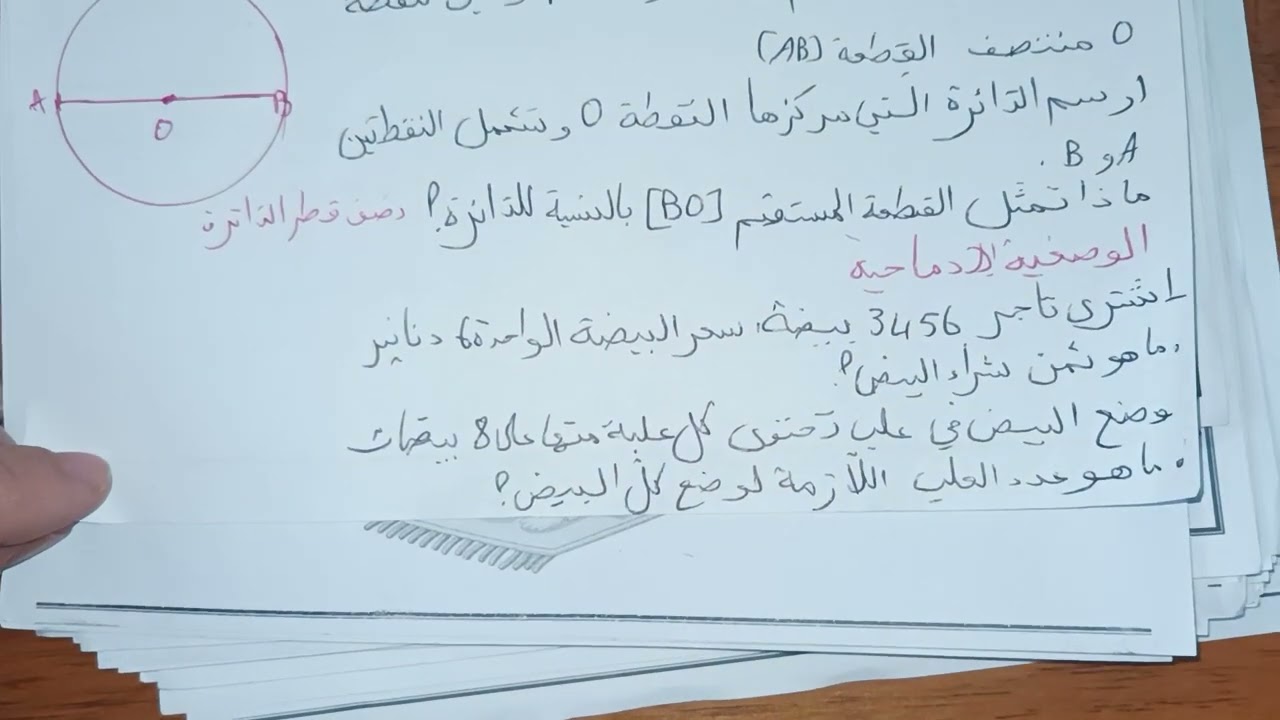 O منتصف القطعة [AB]
ارسم الدائرة التي مركزها النقطة O وتشمل النقطتين
A و B .
ماذا تمثل القطعة المستقيم [BO] بالنسبة للدائرة؟ نصف قطر الدائرة
الوضعية الإدماجية
اشترى تاجر 3456 بيضة، سعر البيضة الواحدة 6 دنانير
. ما هو ثمن شراء البيض؟
وضع البيض في علب تحتوي كل علبة منها على 8 بيضات
. ما هو عدد العلب اللازمة لوضع كل البيض؟
A
B
O